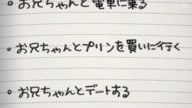 ○お兄ちゃんと電車に乗る
○お兄ちゃんとプリンを買いに行く
○お兄ちゃんとデートする